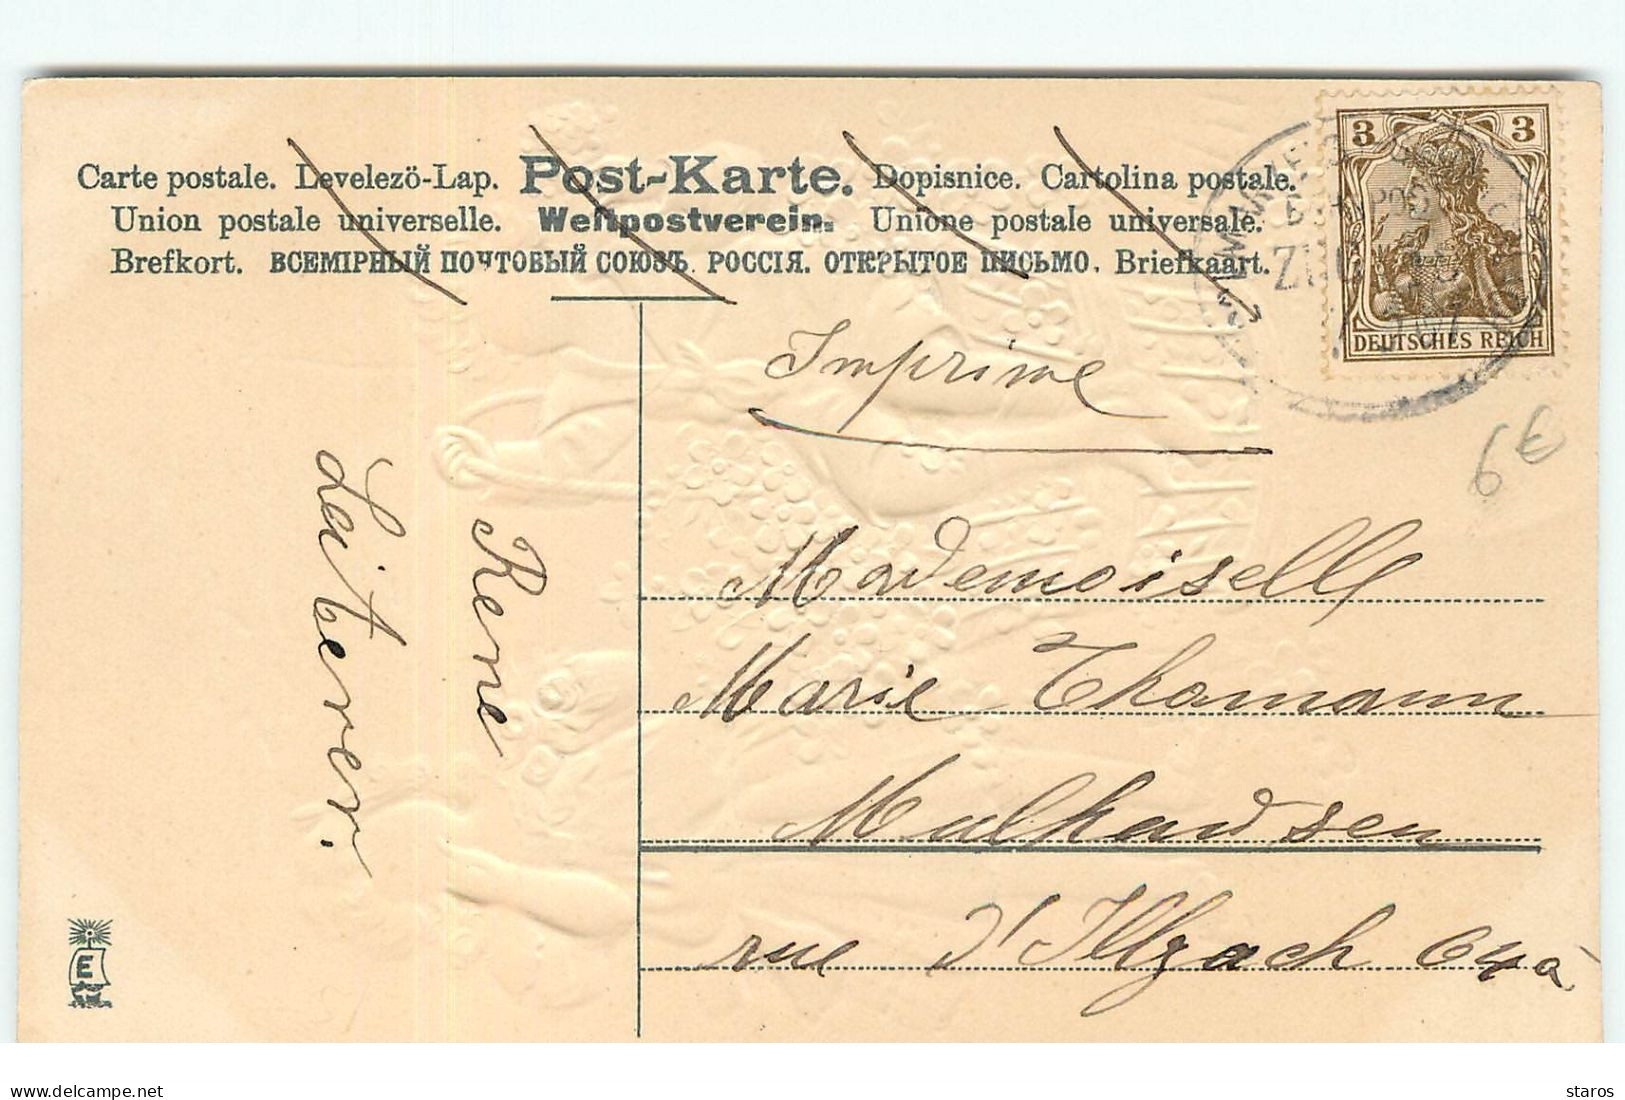 Carte postale. Levelezö-Lap. Post-Karte. Dopisnice. Cartolina postale.
Union postale universelle. Weltpostverein. Unione postale universale.
Brefkort. ВСЕМІРНЫЙ ПОЧТОВЫЙ СОЮЗЪ. РОССІЯ. ОТКРЫТОЕ ПИСЬМО. Briefkaart.
3 3
DEUTSCHES REICH
ZUG
Imprime
6€
Mademoiselle
Marie Thomann
Mulhausen
rue d'Illzach 64a
Rene
E
delcampe.net
staros